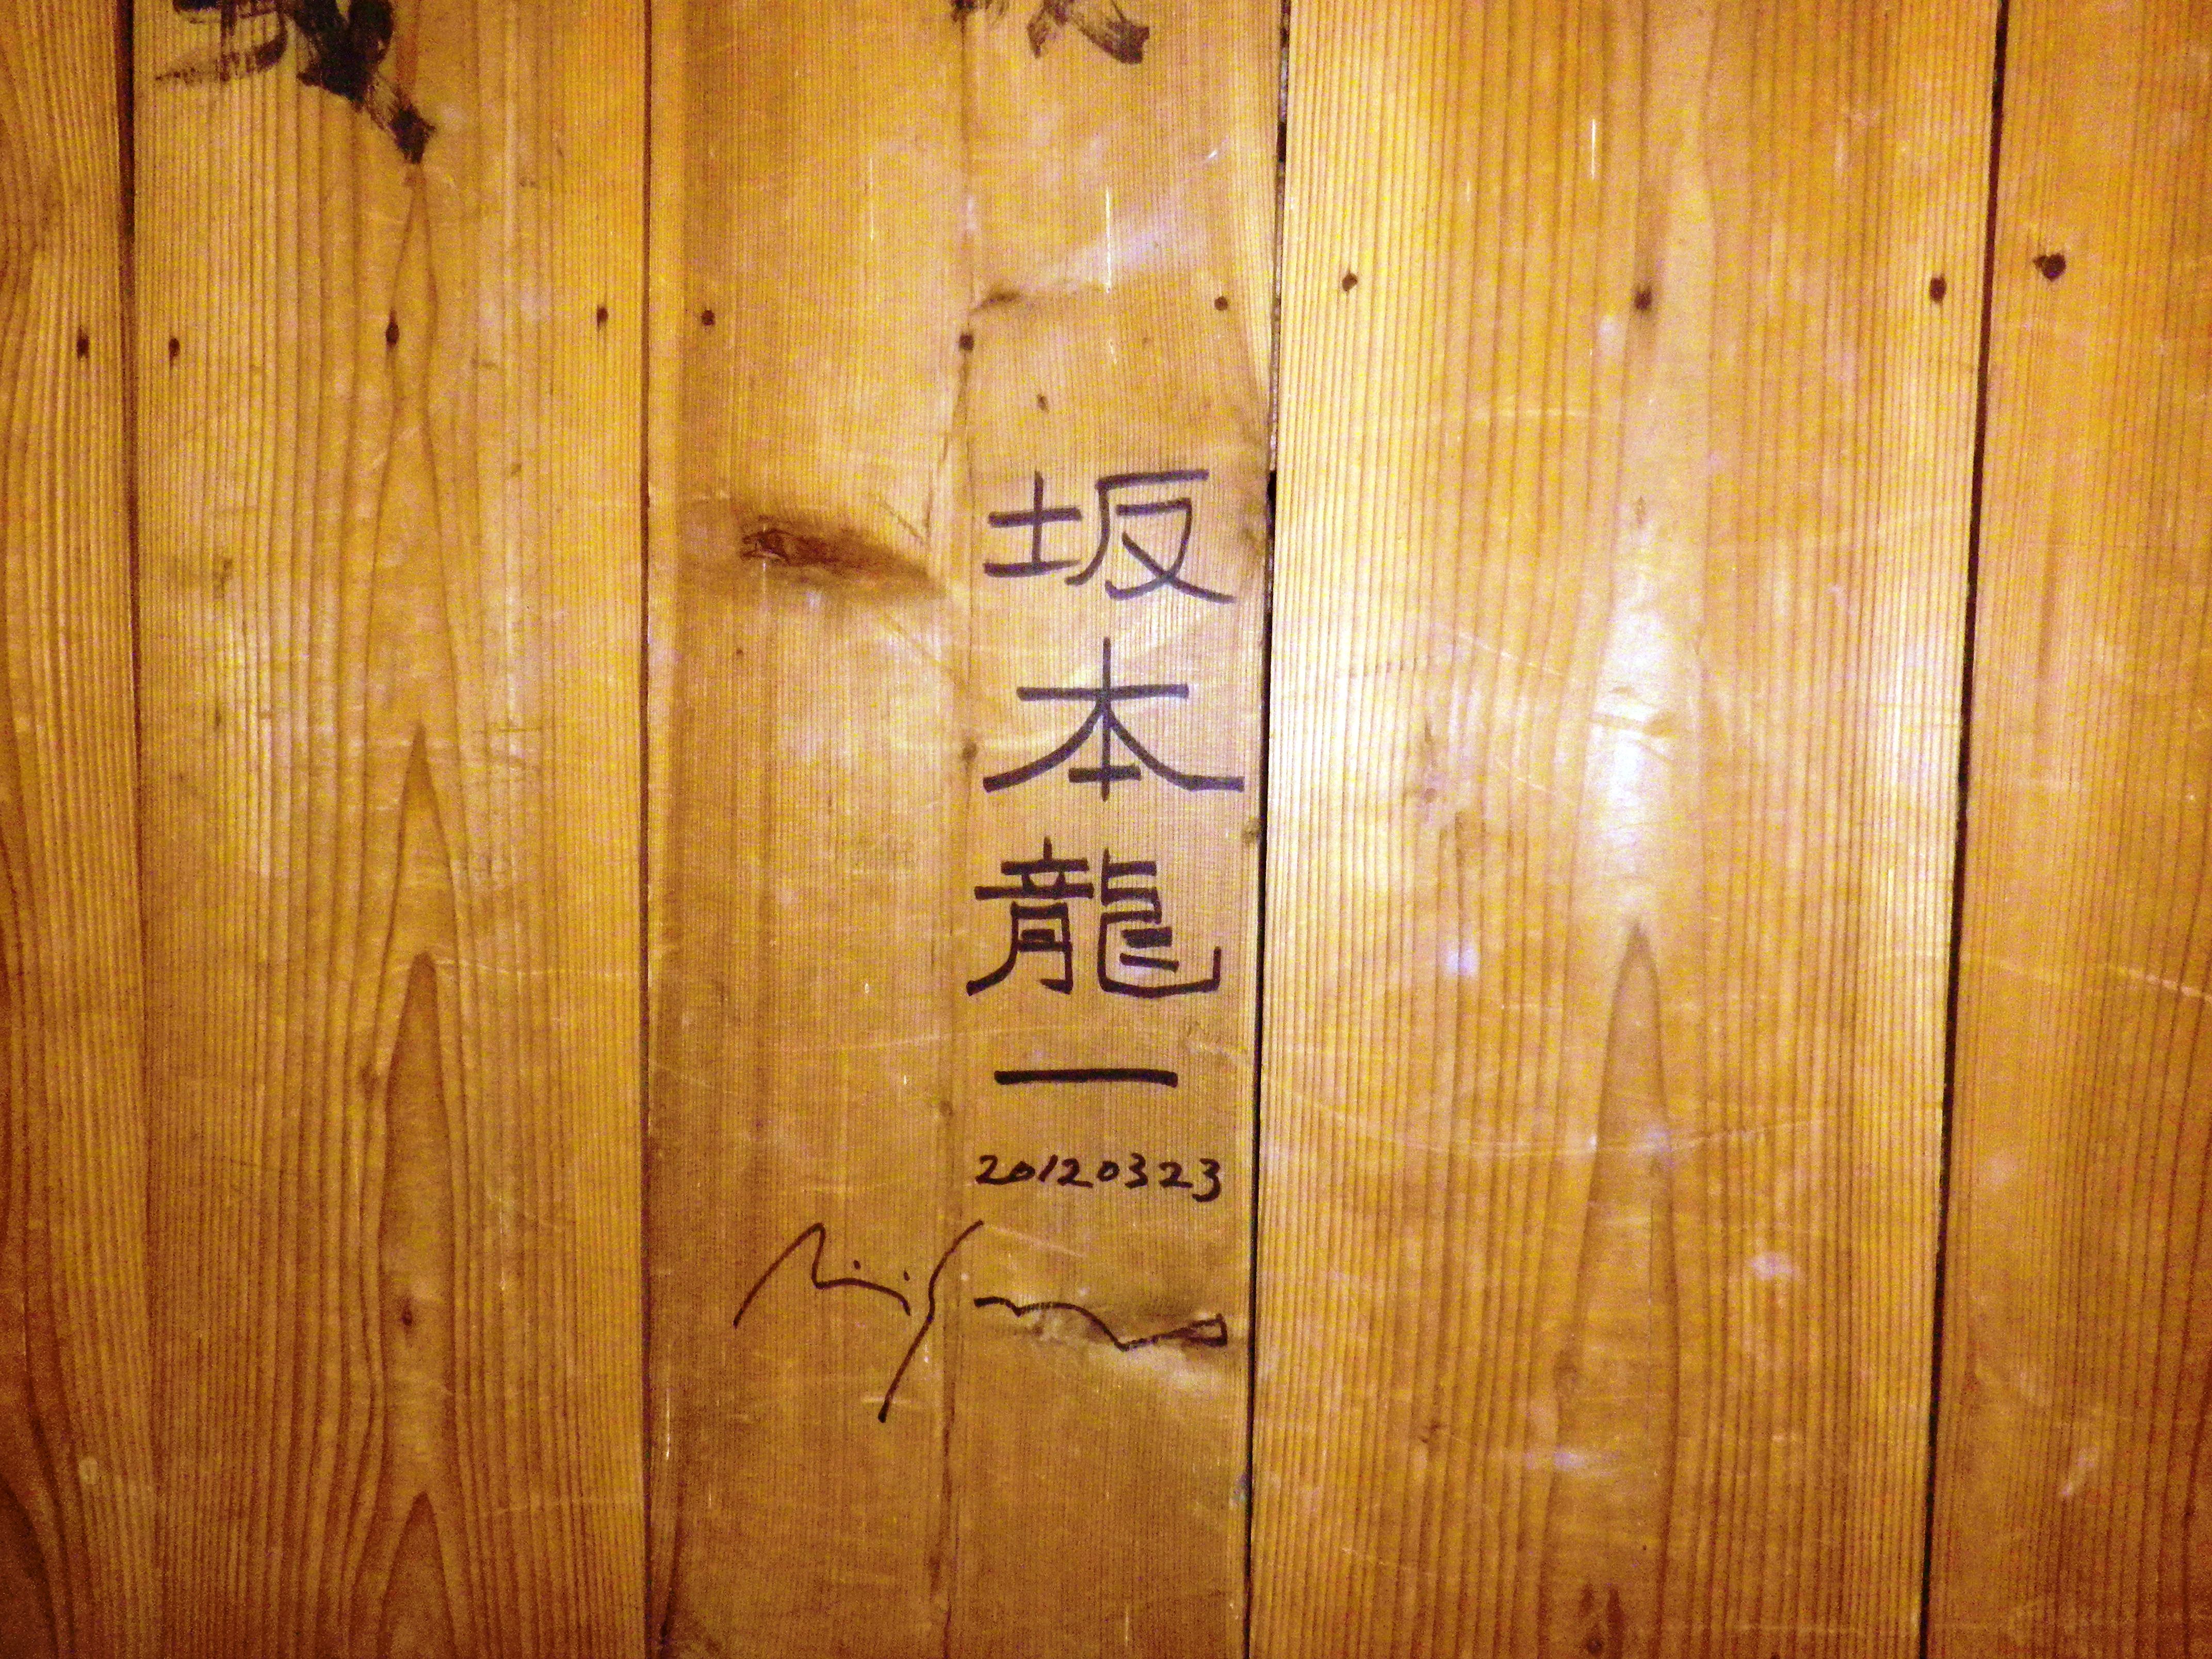 坂本龍一
20120323